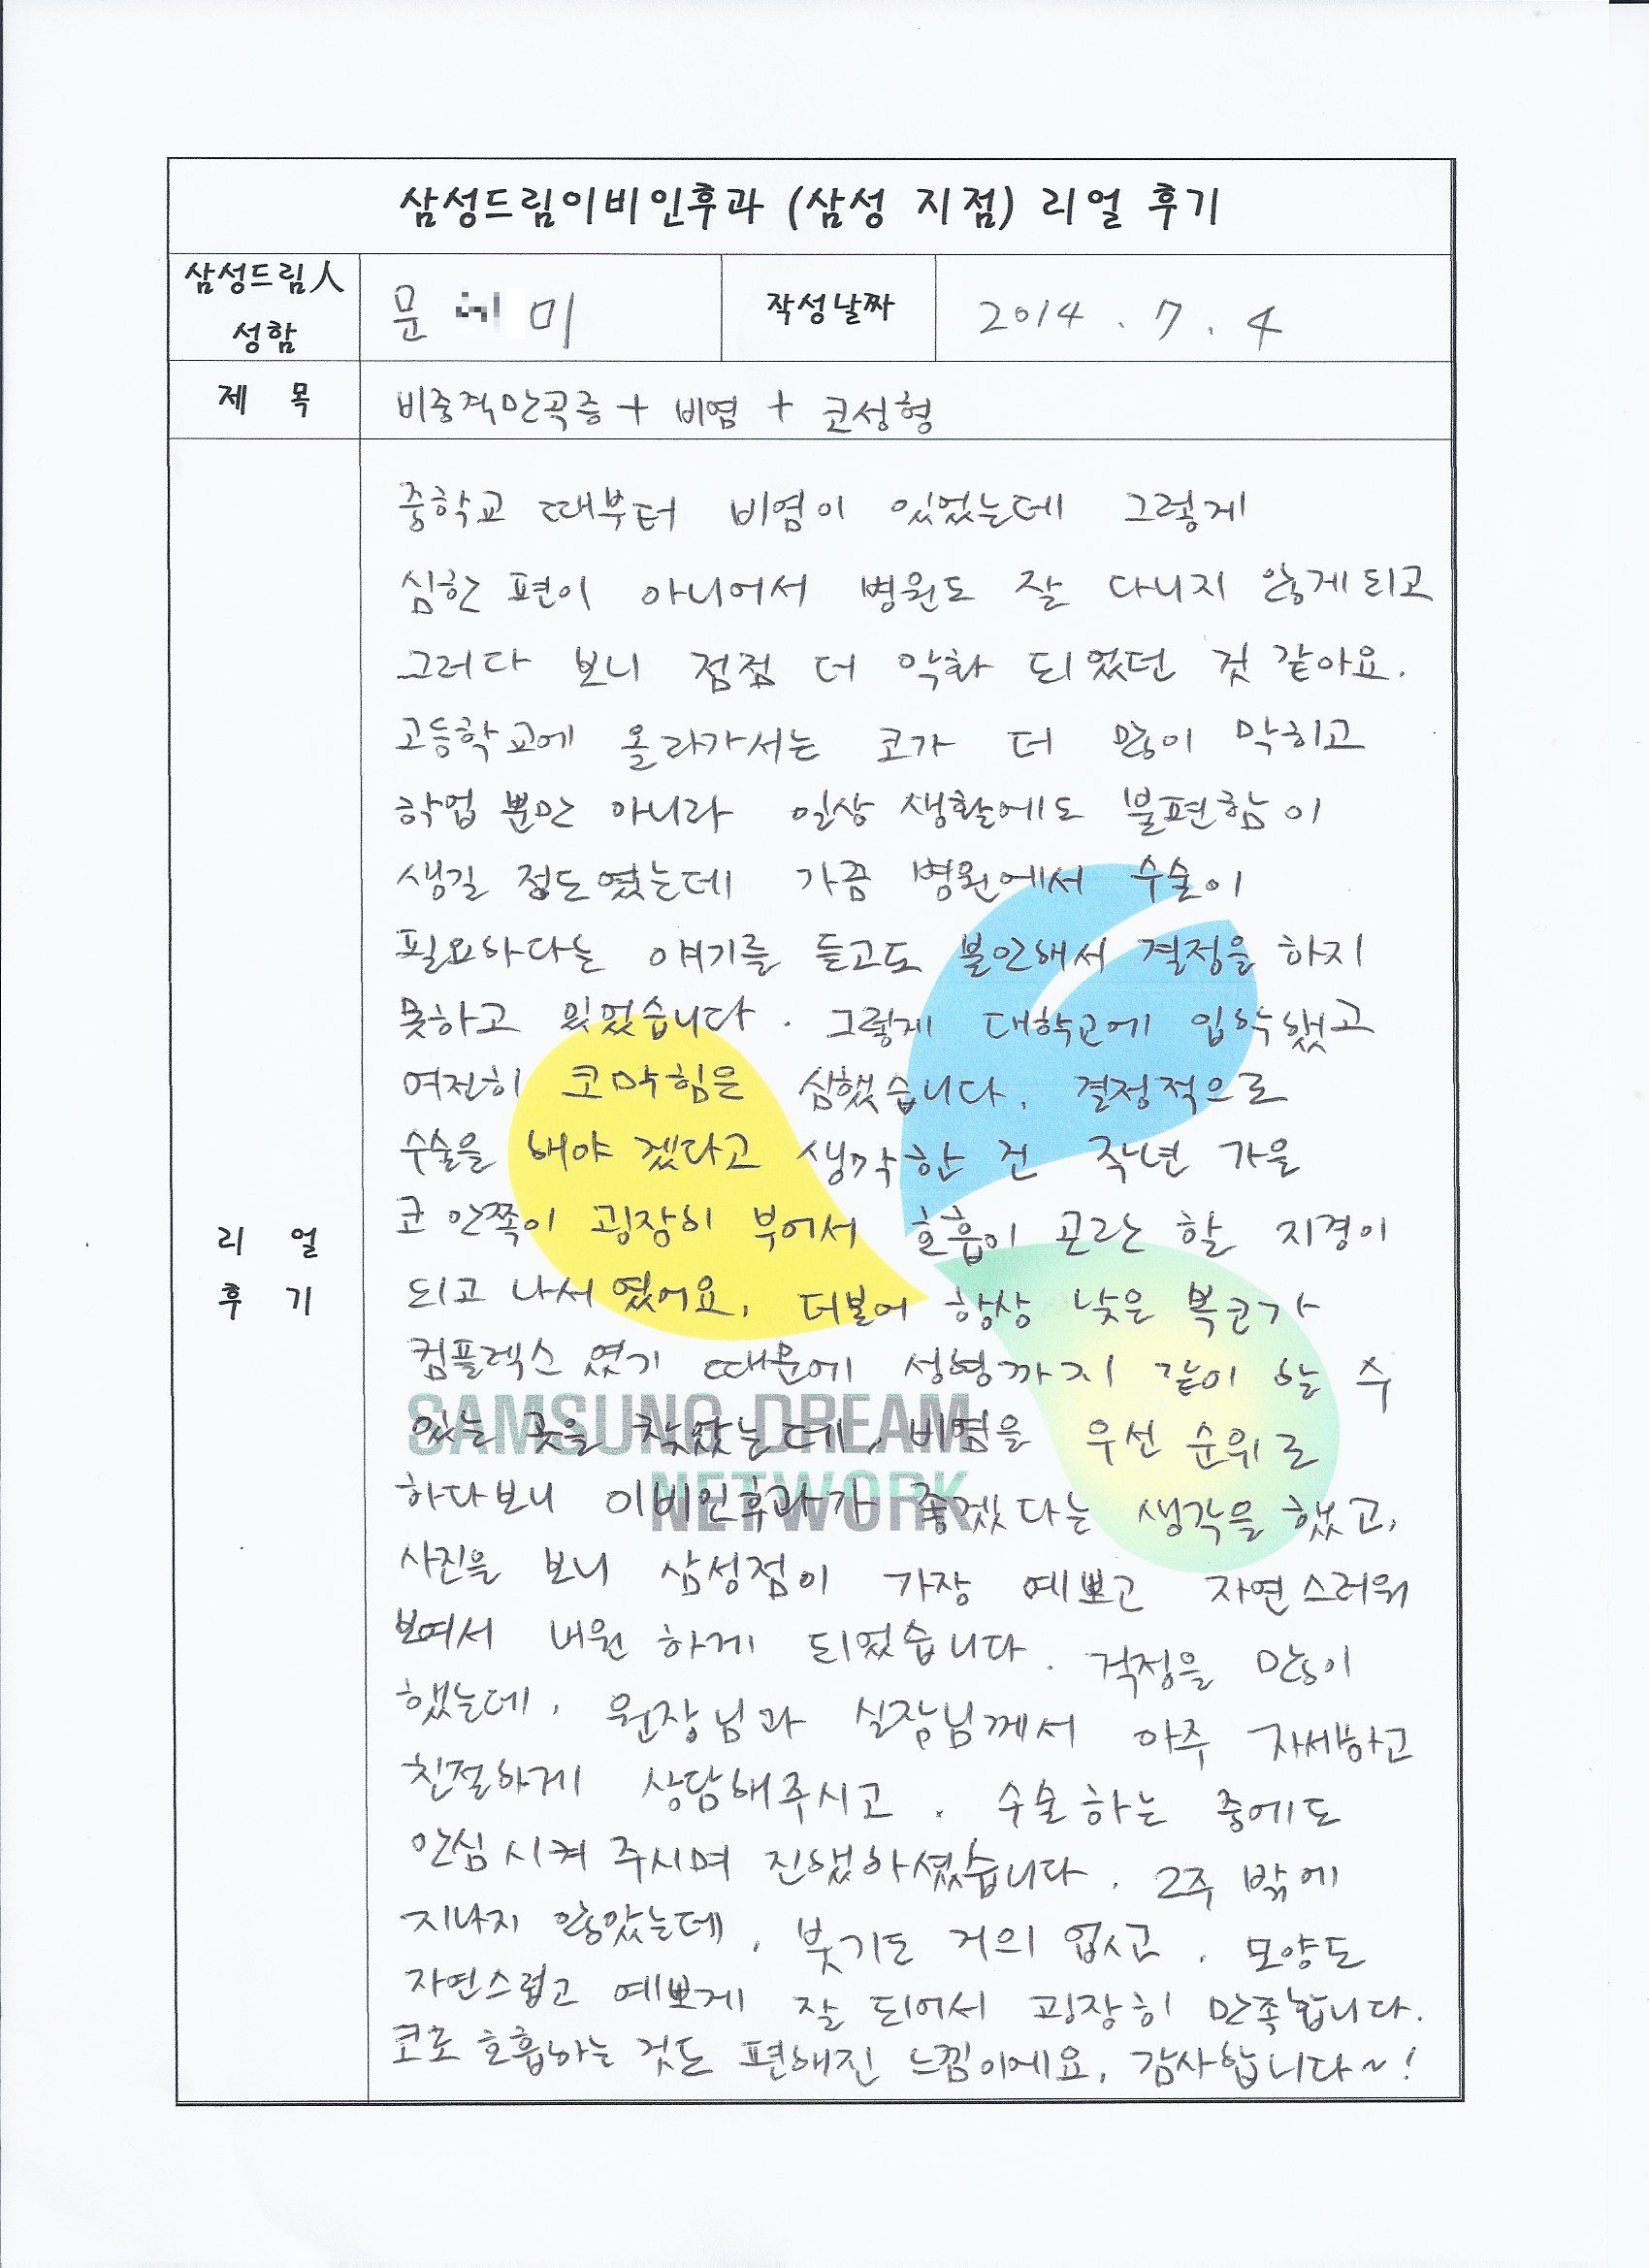 삼성드림이비인후과 (삼성 지점) 리얼 후기
삼성드림人
성함
문 미
작성날짜
2014 . 7 . 4
제 목
비중격만곡증 + 비염 + 코성형
중학교 때부터 비염이 있었는데 그렇게
심한 편이 아니어서 병원도 잘 다니지 않게되고
그러다 보니 점점 더 악화 되었던 것 같아요.
고등학교에 올라가서는 코가 더 많이 막히고
학업 뿐만 아니라 일상 생활에도 불편함이
생길 정도였는데 가끔 병원에서 수술이
필요하다는 얘기를 듣고도 불안해서 결정을 하지
못하고 있었습니다. 그렇게 대학교에 입학했고
여전히 코막힘은 심했습니다. 결정적으로
수술을 해야 겠다고 생각한 건 작년 가을
코 안쪽이 굉장히 부어서 호흡이 곤란 할 지경이
되고 나서 였어요. 더불어 항상 낮은 복코가
컴플렉스 였기 때문에 성형까지 같이 할 수
있는 곳을 찾았는데, 비염을 우선 순위로
하다보니 이비인후과가 좋겠다는 생각을 했고,
사진을 보니 삼성점이 가장 예쁘고 자연스러워
보여서 내원 하게 되었습니다. 걱정을 많이
했는데, 원장님과 실장님께서 아주 자세하고
친절하게 상담해주시고, 수술하는 중에도
안심시켜 주시며 진행하셨습니다. 2주 밖에
지나지 않았는데, 붓기도 거의 없고, 모양도
자연스럽고 예쁘게 잘 되어서 굉장히 만족합니다.
코로 호흡하는 것도 편해진 느낌이에요. 감사합니다~!
리 얼
후 기
SAMSUNG DREAM
NETWORK